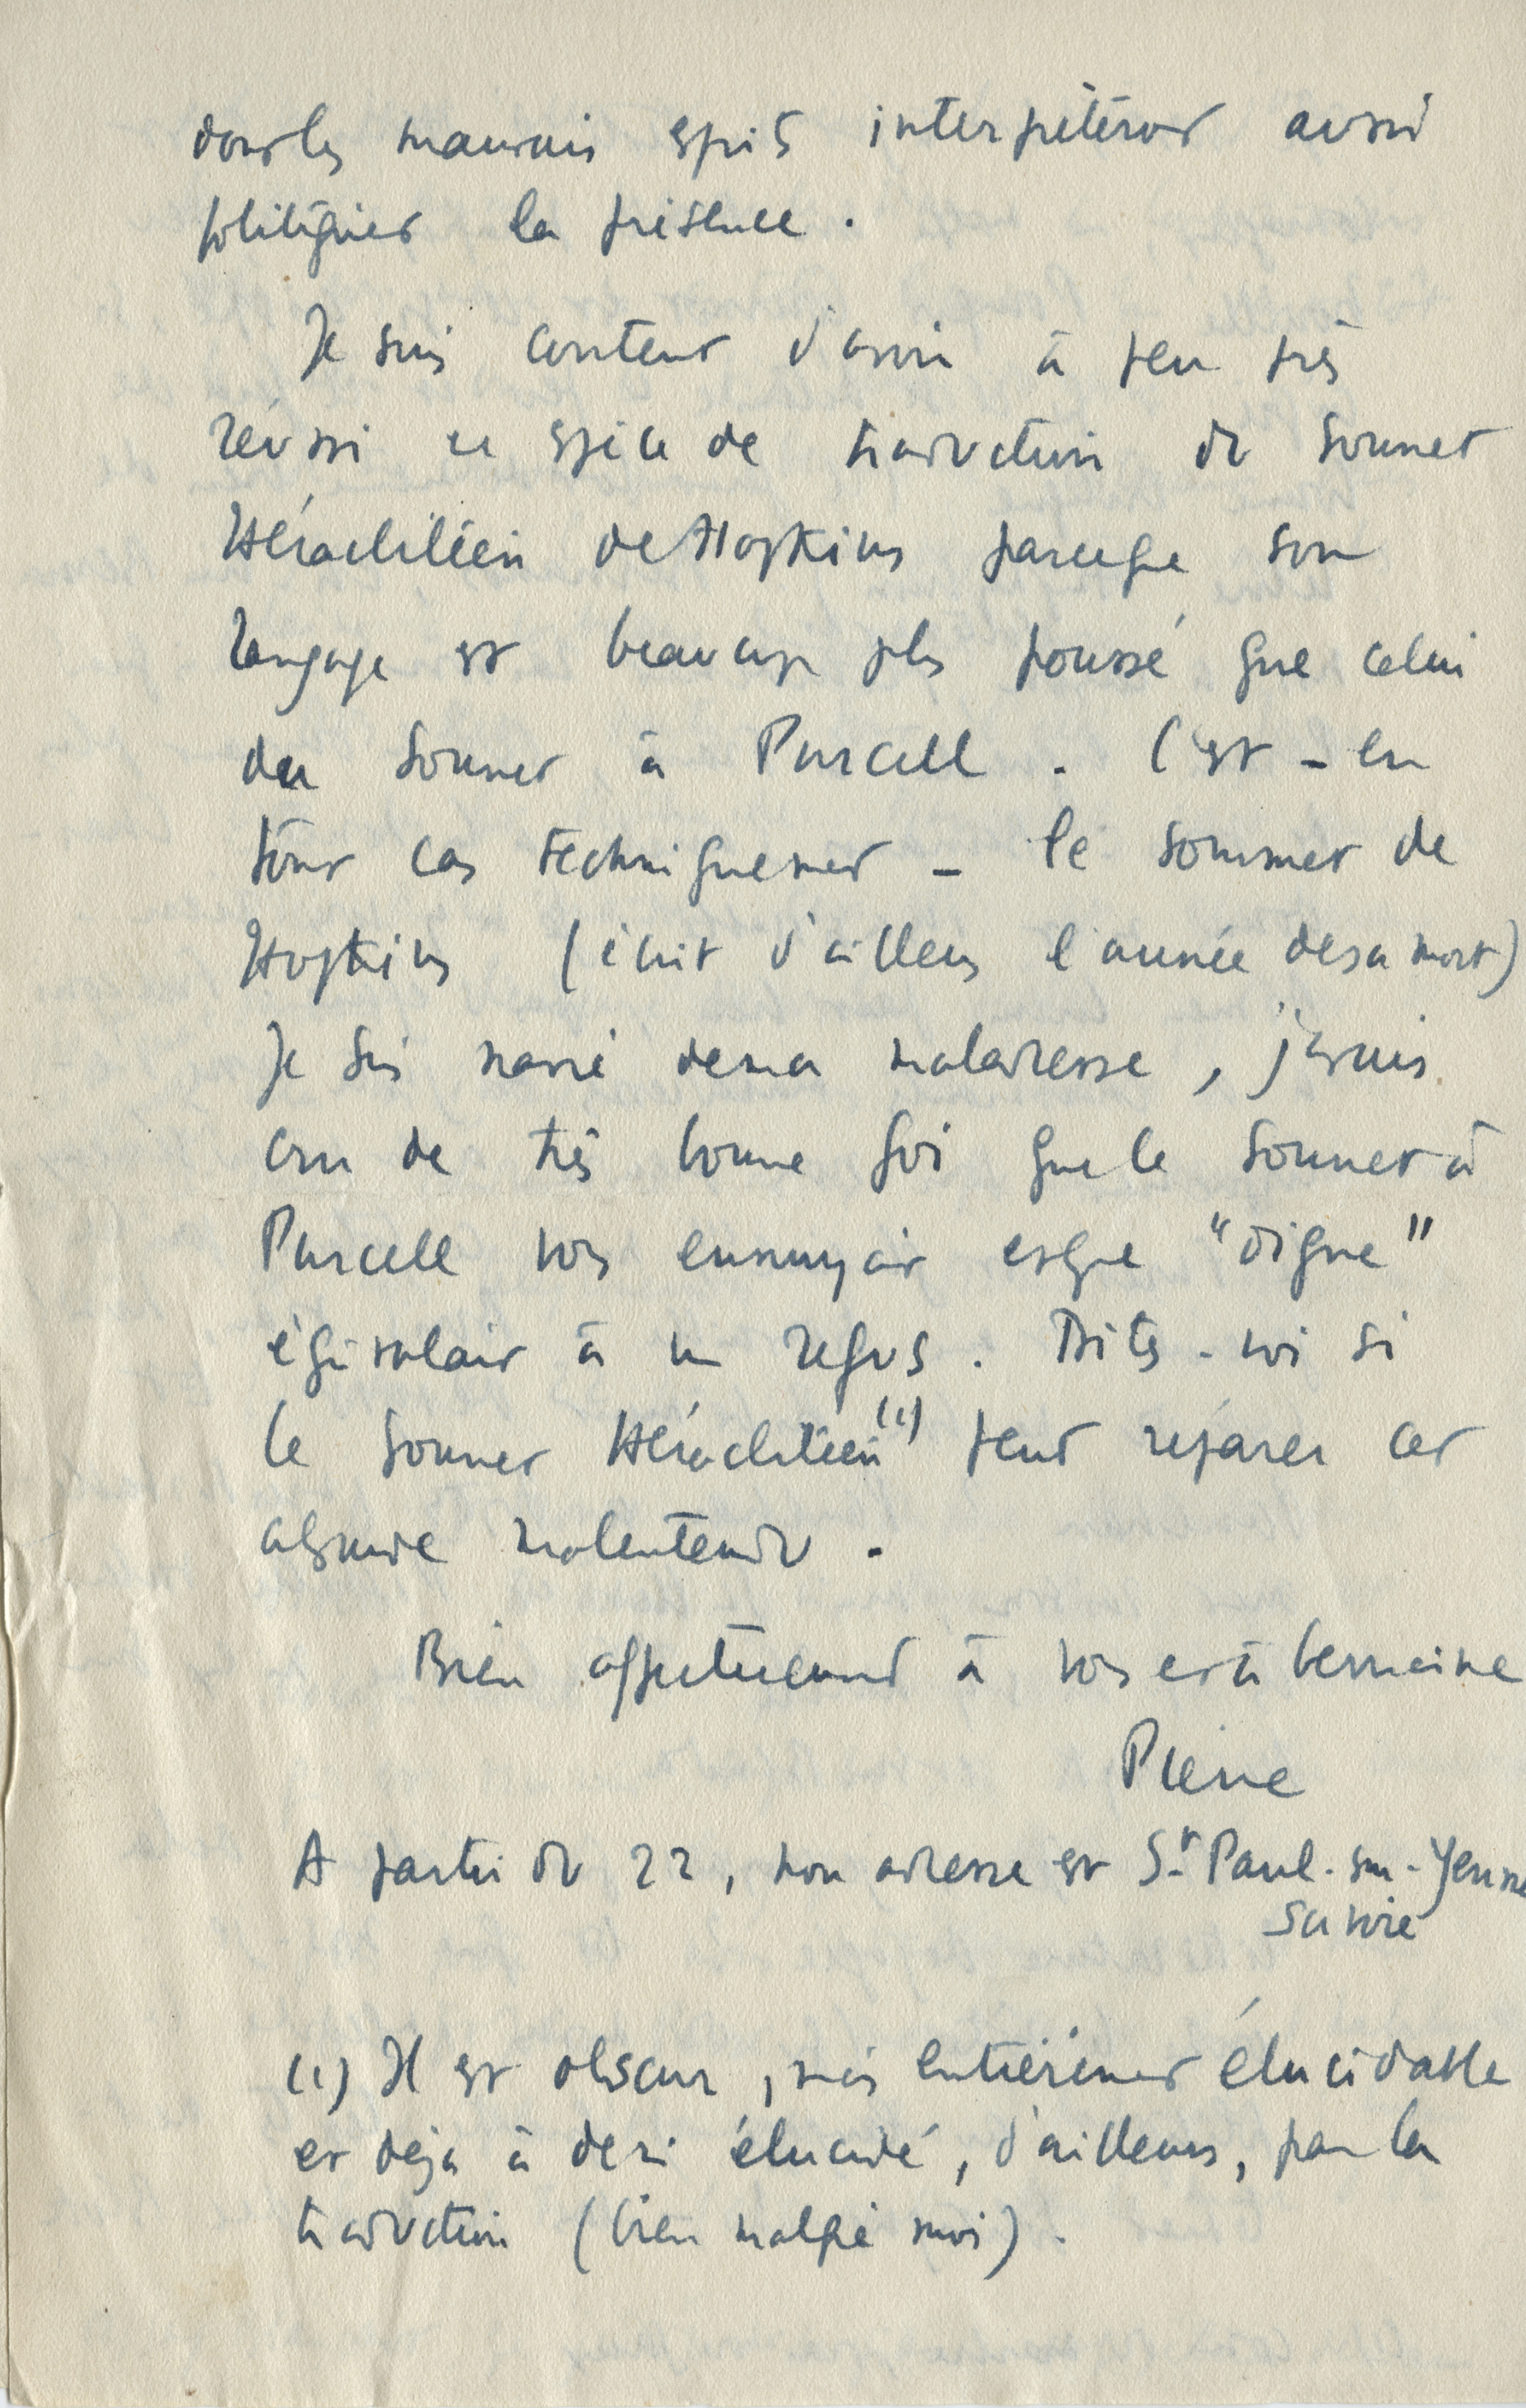 dont les mauvais esprits interpréteront aussi
politiquement la présence.
Je suis content d'avoir à peu près
réussi ce espèce de traduction du sonnet
Héraclitéen de Hopkins parce que son
langage est beaucoup plus poussé que celui
du sonnet à Purcell. C'est - en
tout cas techniquement - le sommet de
Hopkins (écrit d'ailleurs l'année de sa mort)
Je suis navré de ma maladresse, j'avais
cru de très bonne foi que le sonnet à
Purcell vous ennuyait et que "digne"
équivalait à un refus. Dites-moi si
le sonnet Héraclitéen (1) peut réparer cet
absurde malentendu.
Bien affectueusement à vous et à Germaine
Pierre
A partir du 22, mon adresse est St Paul-sur-Yenne
Savoie
(1) Il est obscur, mais entièrement élucidable
et déjà à demi élucidé, d'ailleurs, par la
traduction (bien malgré moi).